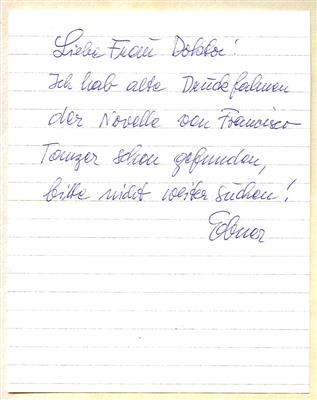 Liebe Frau Doktor!
Ich hab alte Druckfahnen
der Novelle von Francisco
Tanzer schon gefunden,
bitte nicht weiter suchen!
Ebner